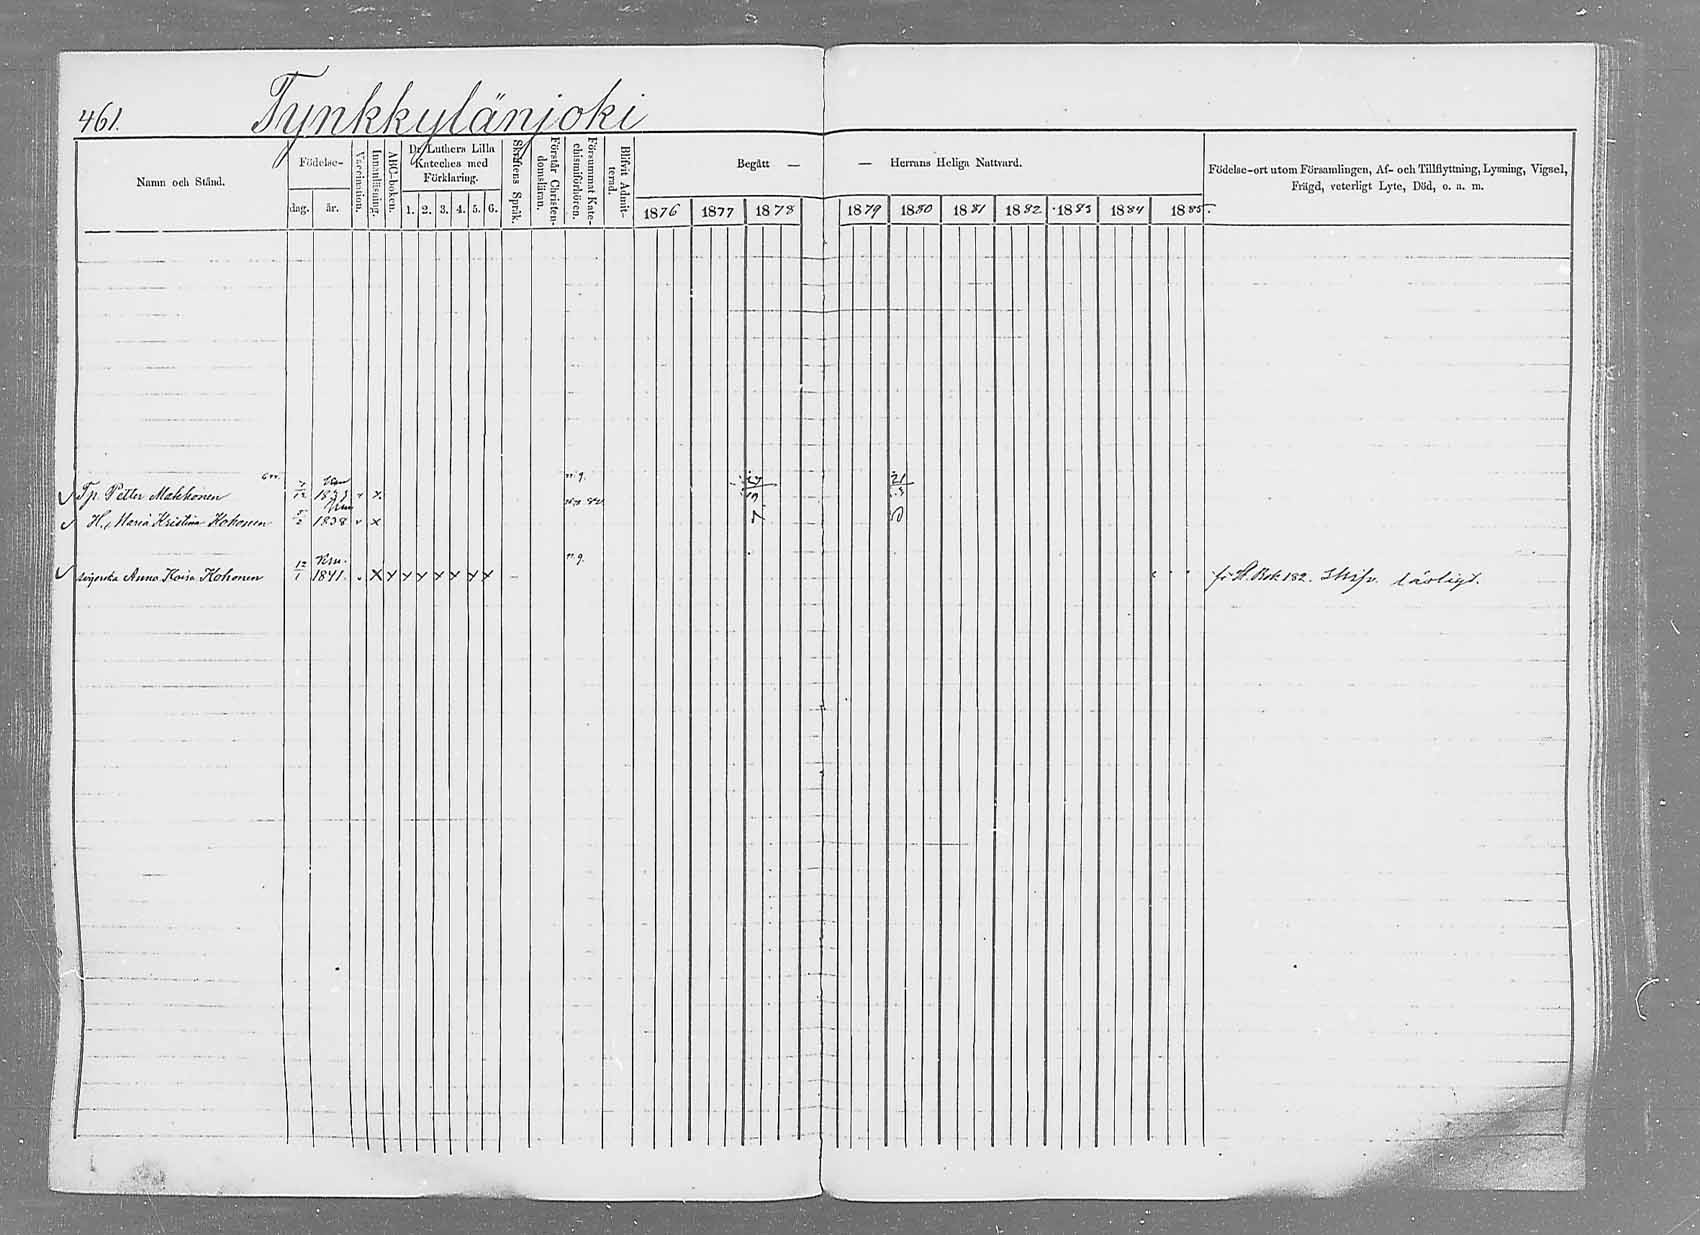 461.
Tynkkylänjoki
Namn och Stånd.
Födelse-
dag. år.
Vaccination.
Innanläsning.
ABC-boken.
Dr Luthers Lilla
Kateches med
Förklaring.
1. 2. 3. 4. 5. 6.
Skriftens Språk.
Förstår Christen-
domsläran.
Försummat Kate-
chismiförhören.
Blifvit Admit-
terad.
Begått — — Herrans Heliga Nattvard.
1876 1877 1878 1879 1880 1881 1882 1883 1884 1885.
Födelse-ort utom Församlingen, Af- och Tillflyttning, Lysning, Vigsel,
Frägd, veterligt Lyte, Död, o. a. m.
n. g. 21
Tp. Petter Makkonen 7/12 v x.
H. Maria Kristina Kohonen 1838 v x 7
12/1 n. g.
Anna Kaisa Kohonen 1841. x x x x x x x x
H. Bok 182.